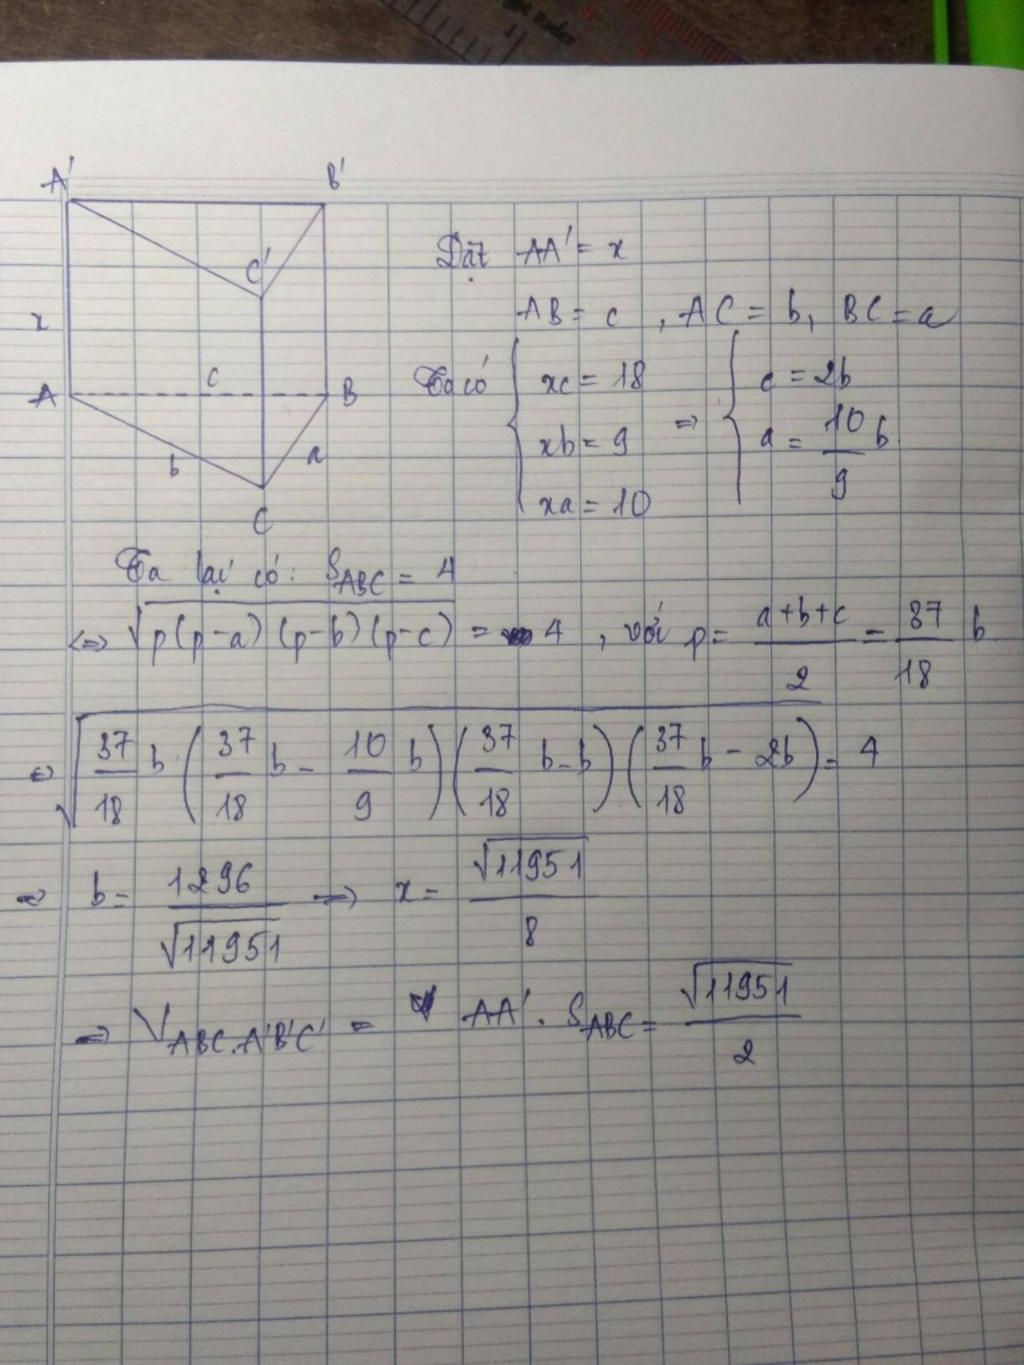 A' B'
Đặt AA' = x
C'
AB = c , AC = b, BC = a
x
c
Ta có { xc = 18 xb = 9 xa = 10 => { c = 2b a = 10/9 b
A B
b a
C
Ta lại có: S_ABC = 4
<=> √(p(p-a)(p-b)(p-c)) = 4 , với p = (a+b+c)/2 = 37/18 b
<=> √(37/18 b (37/18 b - 10/9 b)(37/18 b - b)(37/18 b - 2b)) = 4
=> b = 1296/√11951 => x = √11951/8
=> V_ABC.A'B'C' = AA' . S_ABC = √11951/2